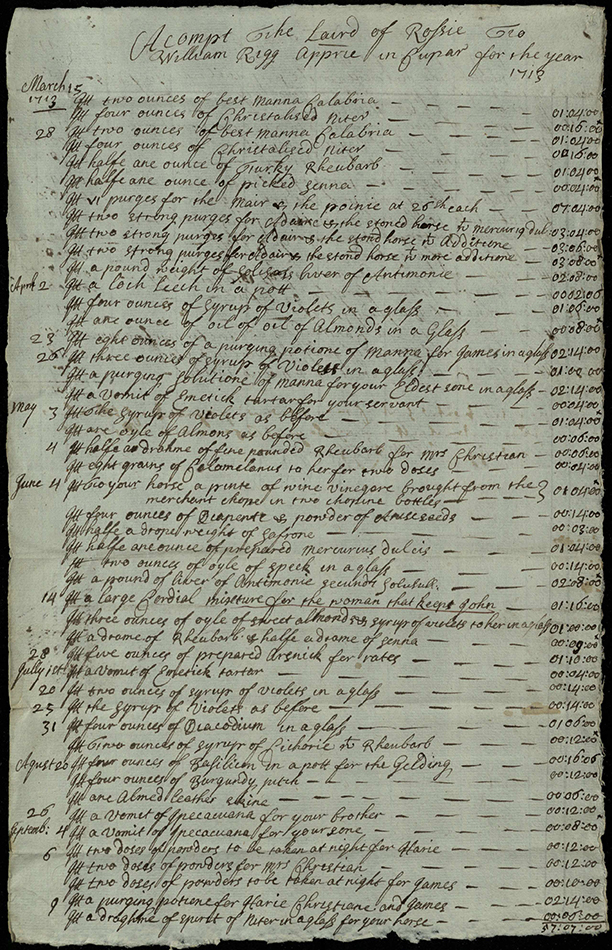 Acompt The Laird of Rossie To
William Rigg Apprie in Cupar for the year
1713
March 15
1713 It two ounces of best Manna Calabria — 01:04:00
It four ounces of Christalised Niter — 00:16:00
28 It two ounces of best Manna Calabria — 01:04:00
It four ounces of Christalised Niter — 00:16:00
It halfe ane ounce of Turky Rheubarb — 01:04:00
It halfe ane ounce of picked Senna — 00:04:00
It vi purges for the Mair & the poinie at 26sh each — 07:04:00
It two strong purges for & the stoned horse wt mercurij dul: 03:04:00
It two strong purges for & the stond horse wt Additione — 03:06:00
It two strong purges for & the stond horse wt more additione — 03:08:00
It a pound weight of liver of Antimonie — 02:08:00
April 2 It a Loch Leech in a pott — 00:02:06
It four ounces of Syrup of Violets in a glass — 01:06:00
It ane ounce of oil of oil of Almonds in a Glass — 00:08:00
23 It eght ounces of a purging potione of Manna for James in a glass 02:14:00
26 It three ounces of Syrup of Violets in a glass — 01:00:00
It a purging Solutione of Manna for your Eldest sone in a glass — 02:14:00
It a Vomit of Emetick tartar for your servant — 00:04:00
May 3 It the Syrup of Violets as before — 01:04:00
It are oyle of Almons as before — 00:06:00
4 It halfe a drahme of fine pounded Rheubarb for Mrs Christian — 00:06:00
It eght grains of Calamelanus to her for two doses — 00:04:00
June 4 It to your horse a pinte of wine vinegare brought from the
merchant chope in two chopine bottles — 01:04:00
It four ounces of Diapente & powder of Aniseseeds — 00:14:00
It halfe a drope weight of Safrone — 00:03:00
It halfe ane ounce of prepared Mercurius dulcis — 01:04:00
It two ounces of oyle of speck in a glass — 00:14:00
It a pound of liver of Antimonie secundi — 02:08:00
14 It a large Cordial mixture for the woman that keept John — 01:16:00
It three ounces of oyle of sweet almonds & syrup of violets to her in a glass 01:00:00
It a drame of Rheubarb & halfe a drame of senna — 00:09:00
28 It five ounces of prepared Arsnick for rates — 01:10:00
July 1st It a Vomit of Emetick tartar — 00:04:00
20 It two ounces of syrup of Violets in a glass — 00:14:00
25 It the Syrup of Violets as before — 00:14:00
31 It four ounces of Diacodium in a glass — 01:06:00
It two ounces of syrup of Cichorie wt Rheubarb — 00:12:00
Agust 20 It four ounces of Basilicon in a pott for the Gelding — 00:16:06
It four ounces of Burgundy pitch — 00:12:00
It ane Almed leather skine — 00:06:00
26 It a Vomit of Ipecacuana for your brother — 00:12:00
Septemb: 4 It a Vomit of Ipecacuana for your sone — 00:08:00
6 It two doses of powders to be taken at night for Harie — 00:12:00
It two doses of ponders for Mrs Christian — 00:12:00
It two doses of powders to be taken at night for James — 00:10:00
9 It a purging potione for Harie Christiane and James — 02:14:00
It a droghme of spirit of Niter in a glass for your horse — 00:06:00
57:07:00